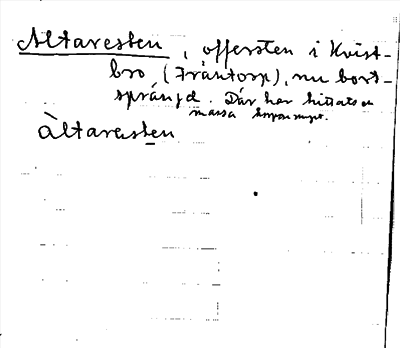 Altaresten, offersten i Kvist-
bro (Fräntorp), nu bort-
sprängd. Där har hittats en
massa kopparmynt.
àltaresten